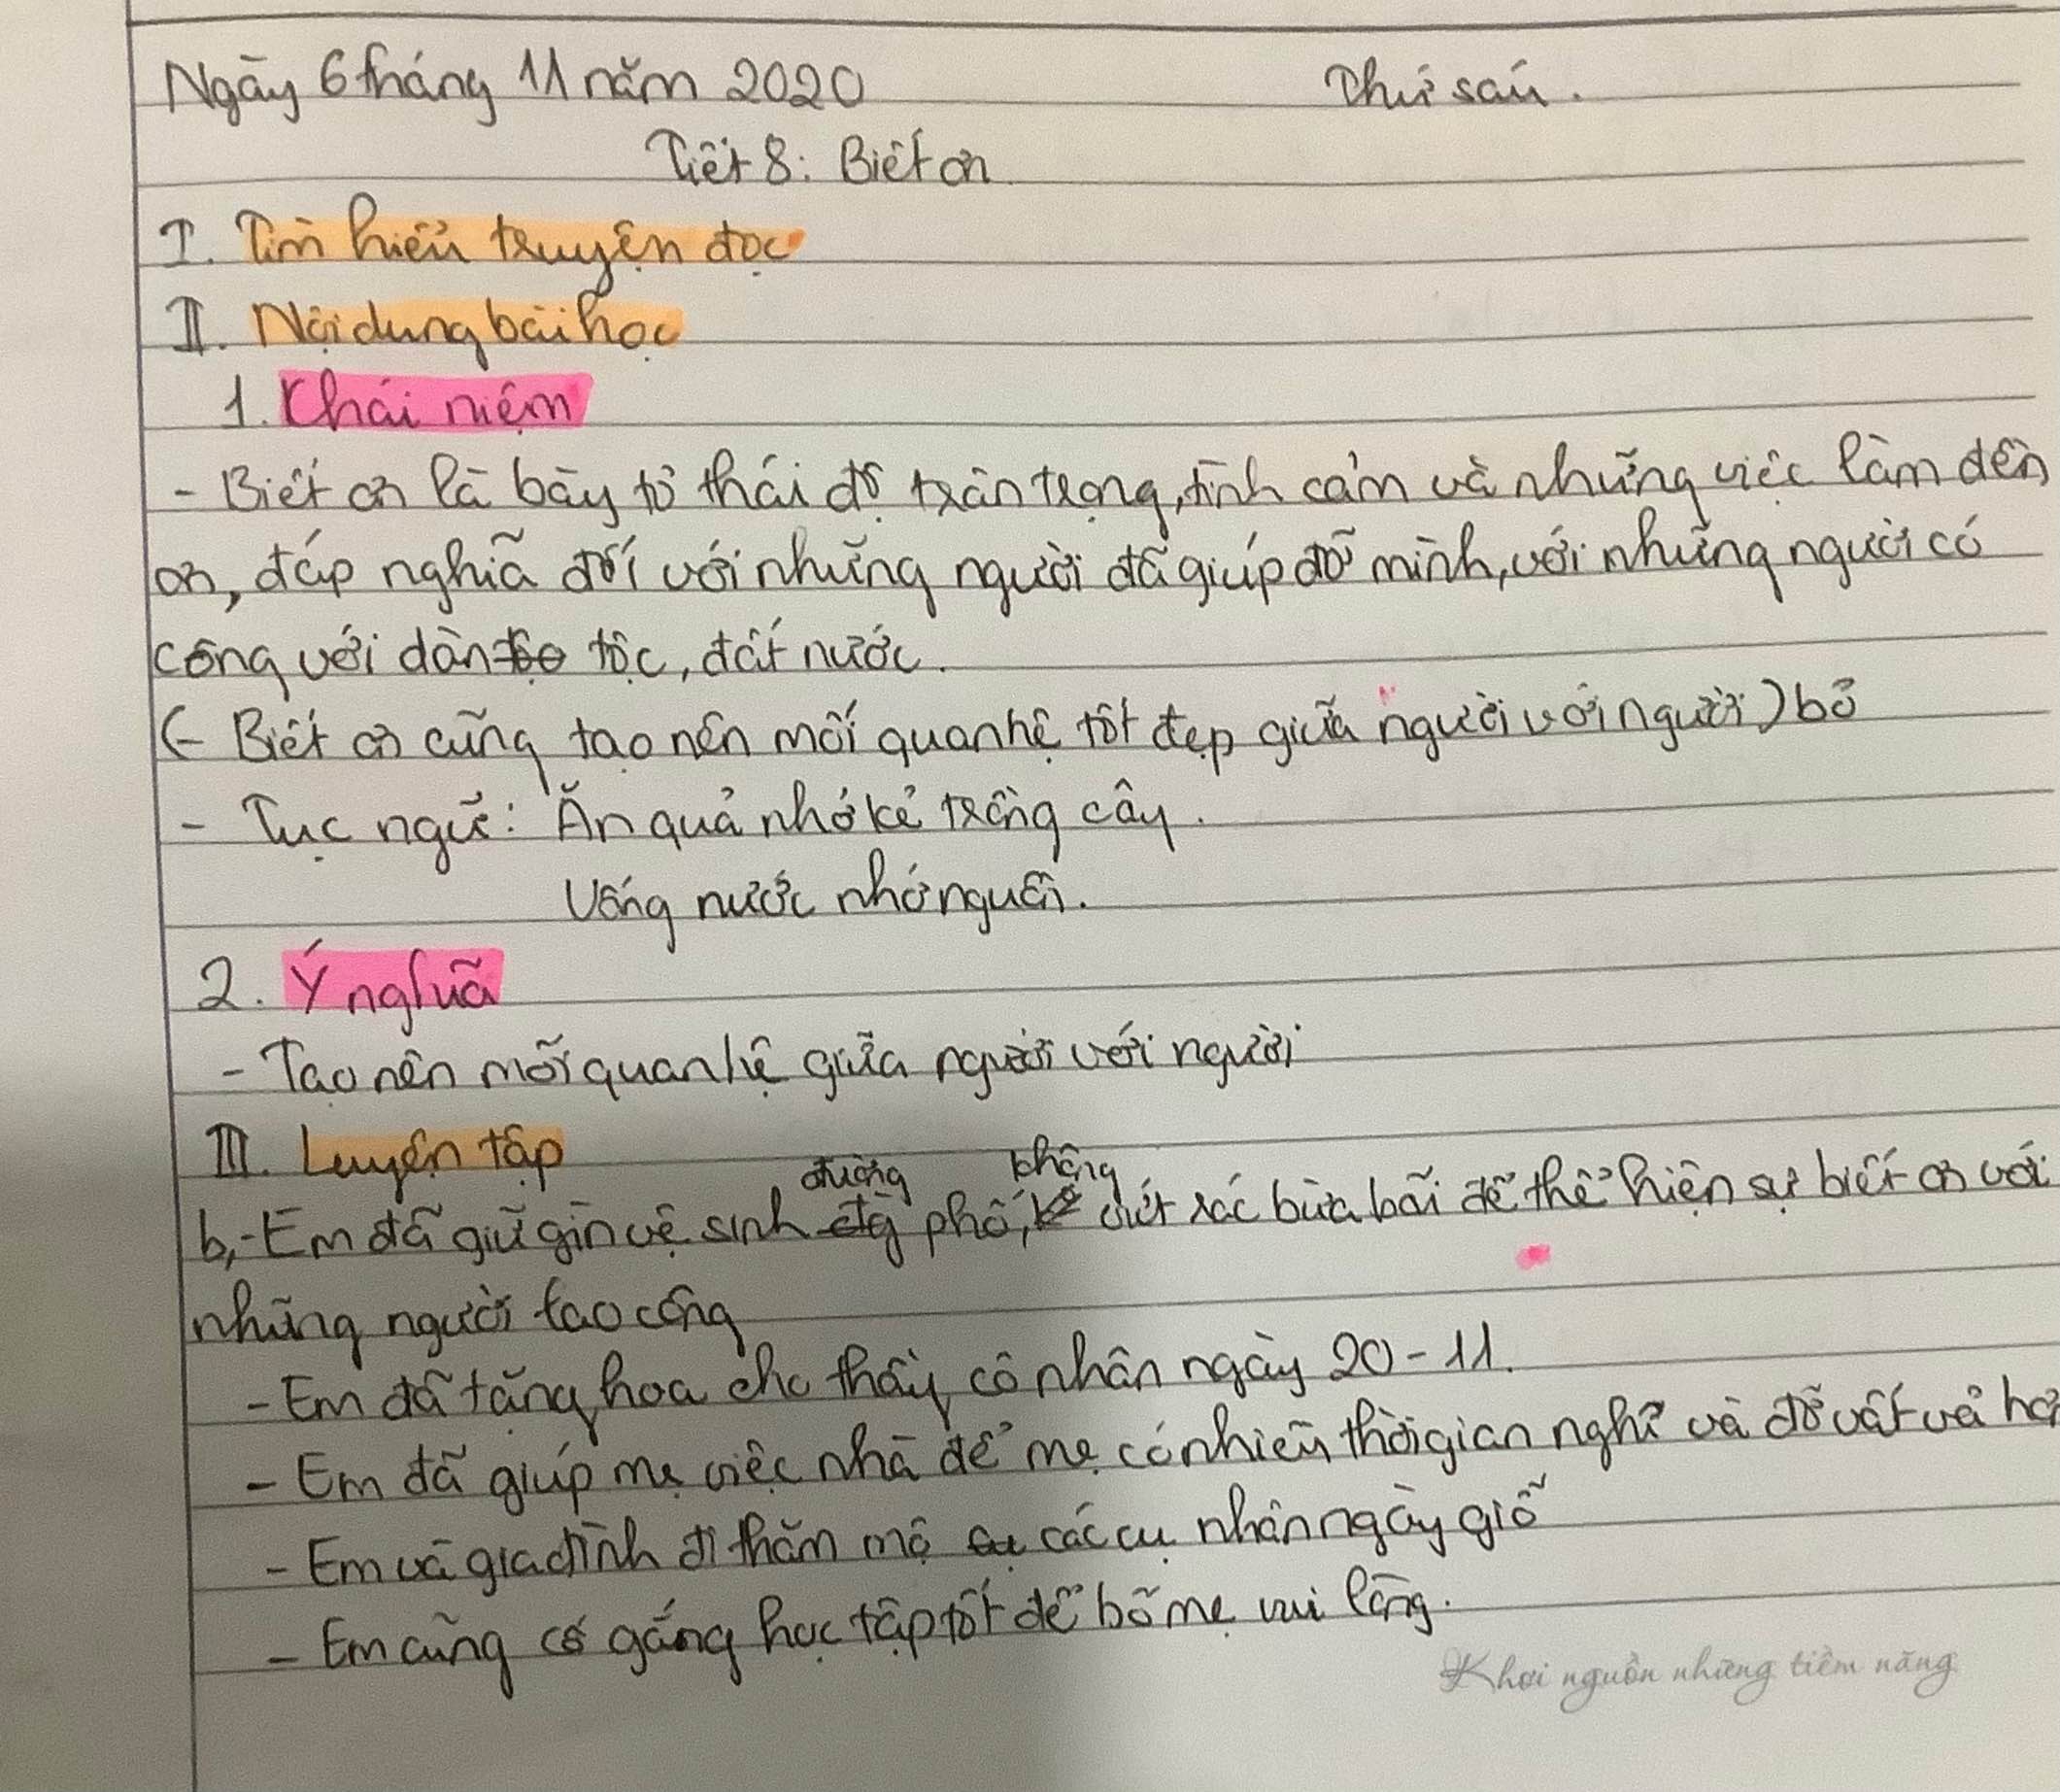 Ngày 6 tháng 11 năm 2020 Thứ sáu.
Tiết 8: Biết ơn
I. Tìm hiểu truyện đọc
II. Nội dung bài học
1. Khái niệm
- Biết ơn là bày tỏ thái độ trân trọng, tình cảm và những việc làm đền
ơn, đáp nghĩa đối với những người đã giúp đỡ mình, với những người có
công với dân tộc, đất nước.
(- Biết ơn cũng tạo nên mối quan hệ tốt đẹp giữa người với người) bỏ
- Tục ngữ: Ăn quả nhớ kẻ trồng cây.
Uống nước nhớ nguồn.
2. Ý nghĩa
- Tạo nên mối quan hệ giữa người với người
III. Luyện tập
b,- Em đã giữ gìn vệ sinh đường phố, không vứt rác bừa bãi để thể hiện sự biết ơn với
những người lao công
- Em đã tặng hoa cho thầy cô nhân ngày 20-11.
- Em đã giúp mẹ việc nhà để mẹ có nhiều thời gian nghỉ và đỡ vất vả hơn
- Em và gia đình đi thăm mộ các cụ nhân ngày giỗ
- Em cũng cố gắng học tập tốt để bố mẹ vui lòng.
Khơi nguồn những tiềm năng